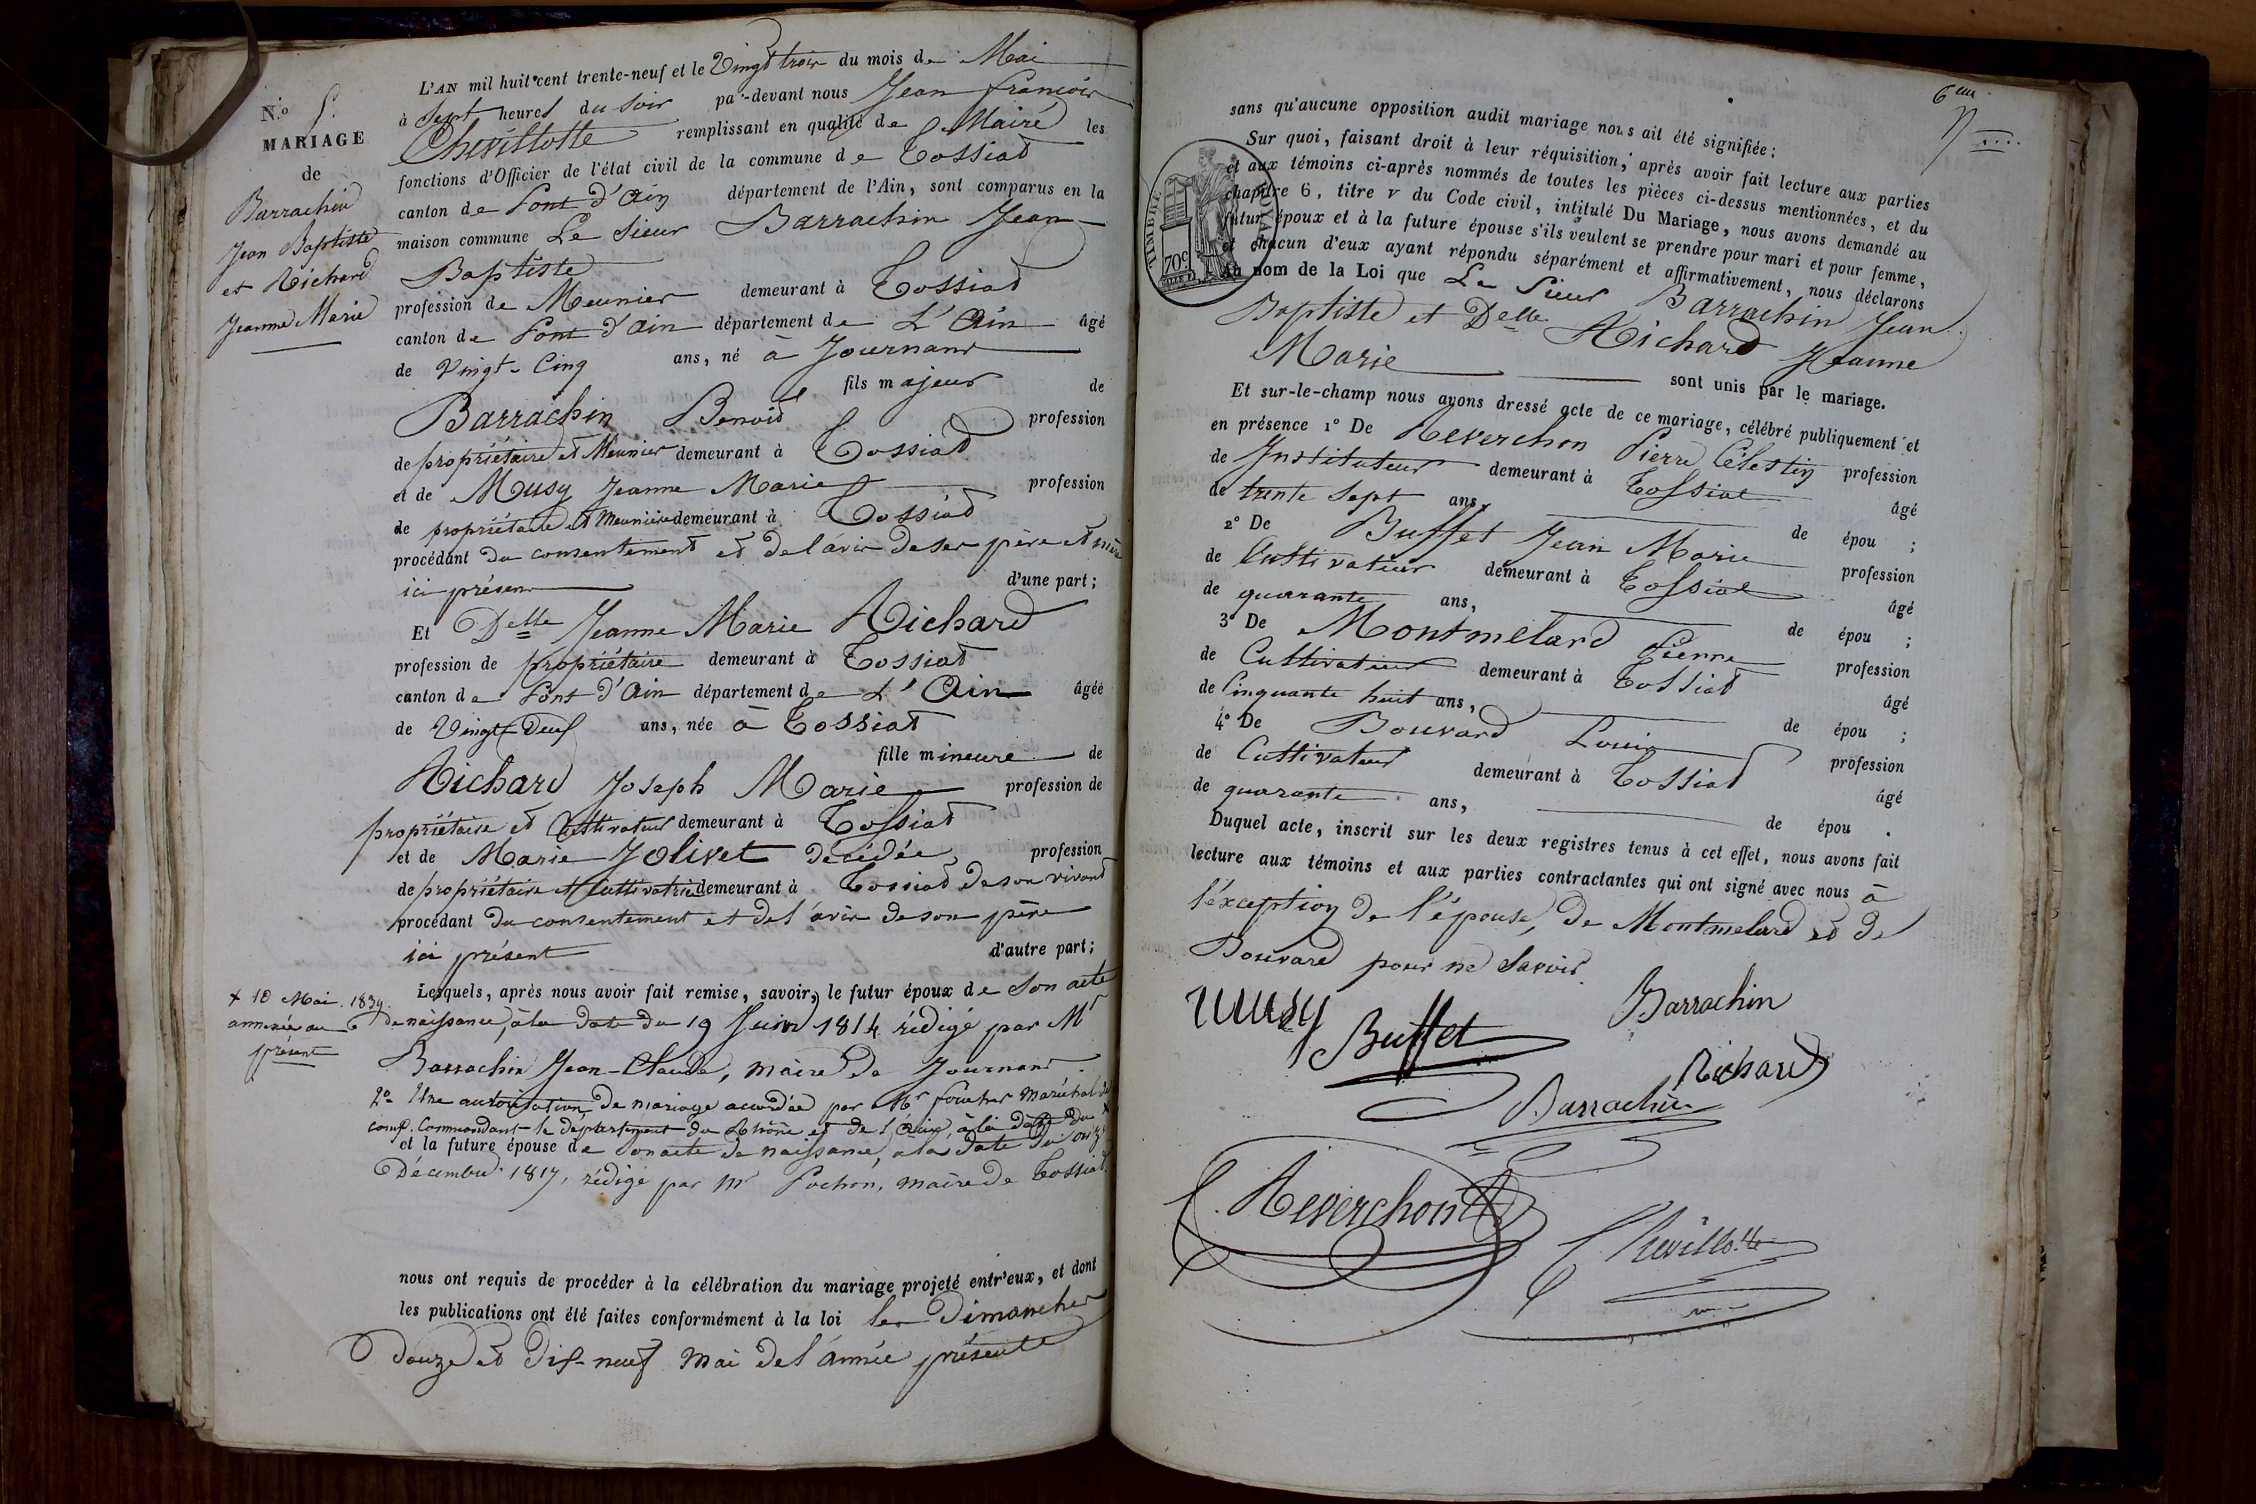 N.º 5.
MARIAGE
de
Barrachin
Jean Baptiste
et Richard
Jeanne Marie
L'AN mil huit cent trente-neuf et le Vingt trois du mois de Mai
à Sept heures du soir par-devant nous Jean François
Chevillotte remplissant en qualité de Maire les
fonctions d'Officier de l'état civil de la commune de Tossiat
canton de Pont d'Ain département de l'Ain, sont comparus en la
maison commune Le Sieur Barrachin Jean
Baptiste
profession de Meunier demeurant à Tossiat
canton de Pont d'Ain département de L'Ain âgé
de Vingt-Cinq ans, né à Journans
fils majeur de
Barrachin Benoit profession
de propriétaire et Meunier demeurant à Tossiat
et de Musy Jeanne Marie profession
de propriétaire et Meunière demeurant à Tossiat
procédant du consentement et de l'avis de ses père et mère
ici présens d'une part;
Et Delle Jeanne Marie Richard
profession de propriétaire demeurant à Tossiat
canton de Pont d'Ain département de L'Ain âgée
de Vingt-Deux ans, née à Tossiat
fille mineure de
Richard Joseph Marie profession de
propriétaire et Cultivateur demeurant à Tossiat
et de Marie Jolivet décédée, profession
de propriétaire et Cultivatrice demeurant à Tossiat de son vivant
procédant du consentement et de l'avis de son père
ici présent d'autre part;
Lesquels, après nous avoir fait remise, savoir, le futur époux de son acte
de naissance, à la date du 19 Juin 1814 rédigé par Mr
Barrachin Jean-Claude, maire de Journans
2º Une autorisation de mariage accordée par Mr Maréchal de
camp. Commandant le département du Rhône et de l'Ain, à la date du +
et la future épouse de son acte de naissance, à la date du onze
Décembre 1817, rédigé par Mr Pochon, maire de Tossiat
+ 18 Mai 1839.
annexée au
présent
nous ont requis de procéder à la célébration du mariage projeté entr'eux, et dont
les publications ont été faites conformément à la loi les Dimanches
douze et dix-neuf mai de l'année présente
6eme
sans qu'aucune opposition audit mariage nous ait été signifiée;
Sur quoi, faisant droit à leur réquisition, après avoir fait lecture aux parties
et aux témoins ci-après nommés de toutes les pièces ci-dessus mentionnées, et du
chapitre 6, titre v du Code civil, intitulé Du Mariage, nous avons demandé au
futur époux et à la future épouse s'ils veulent se prendre pour mari et pour femme,
et chacun d'eux ayant répondu séparément et affirmativement, nous déclarons
au nom de la Loi que Le Sieur Barrachin Jean
Baptiste et Delle Richard Jeanne
Marie sont unis par le mariage.
TIMBRE ROYAL
70c
Et sur-le-champ nous avons dressé acte de ce mariage, célébré publiquement et
en présence 1º De Reverchon Pierre Célestin profession
de Instituteur demeurant à Tossiat âgé
de trente sept ans, de épou ;
2º De Buffet Jean Marie profession
de Cultivateur demeurant à Tossiat âgé
de quarante ans, de épou ;
3º De Montmelard Pierre profession
de Cultivateur demeurant à Tossiat âgé
de Cinquante huit ans, de épou ;
4º De Bouvard Louis profession
de Cultivateur demeurant à Tossiat âgé
de quarante ans, de épou .
Duquel acte, inscrit sur les deux registres tenus à cet effet, nous avons fait
lecture aux témoins et aux parties contractantes qui ont signé avec nous à
l'exception de l'épouse, de Montmelard et de
Bouvard pour ne savoir
Musy Barrachin
Buffet
Richard
Barrachin
Reverchon
Chevillotte